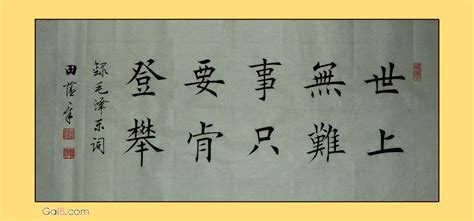 世上
無難
事只
要肯
登攀
録毛泽东词
田蕴章
Gai8.com